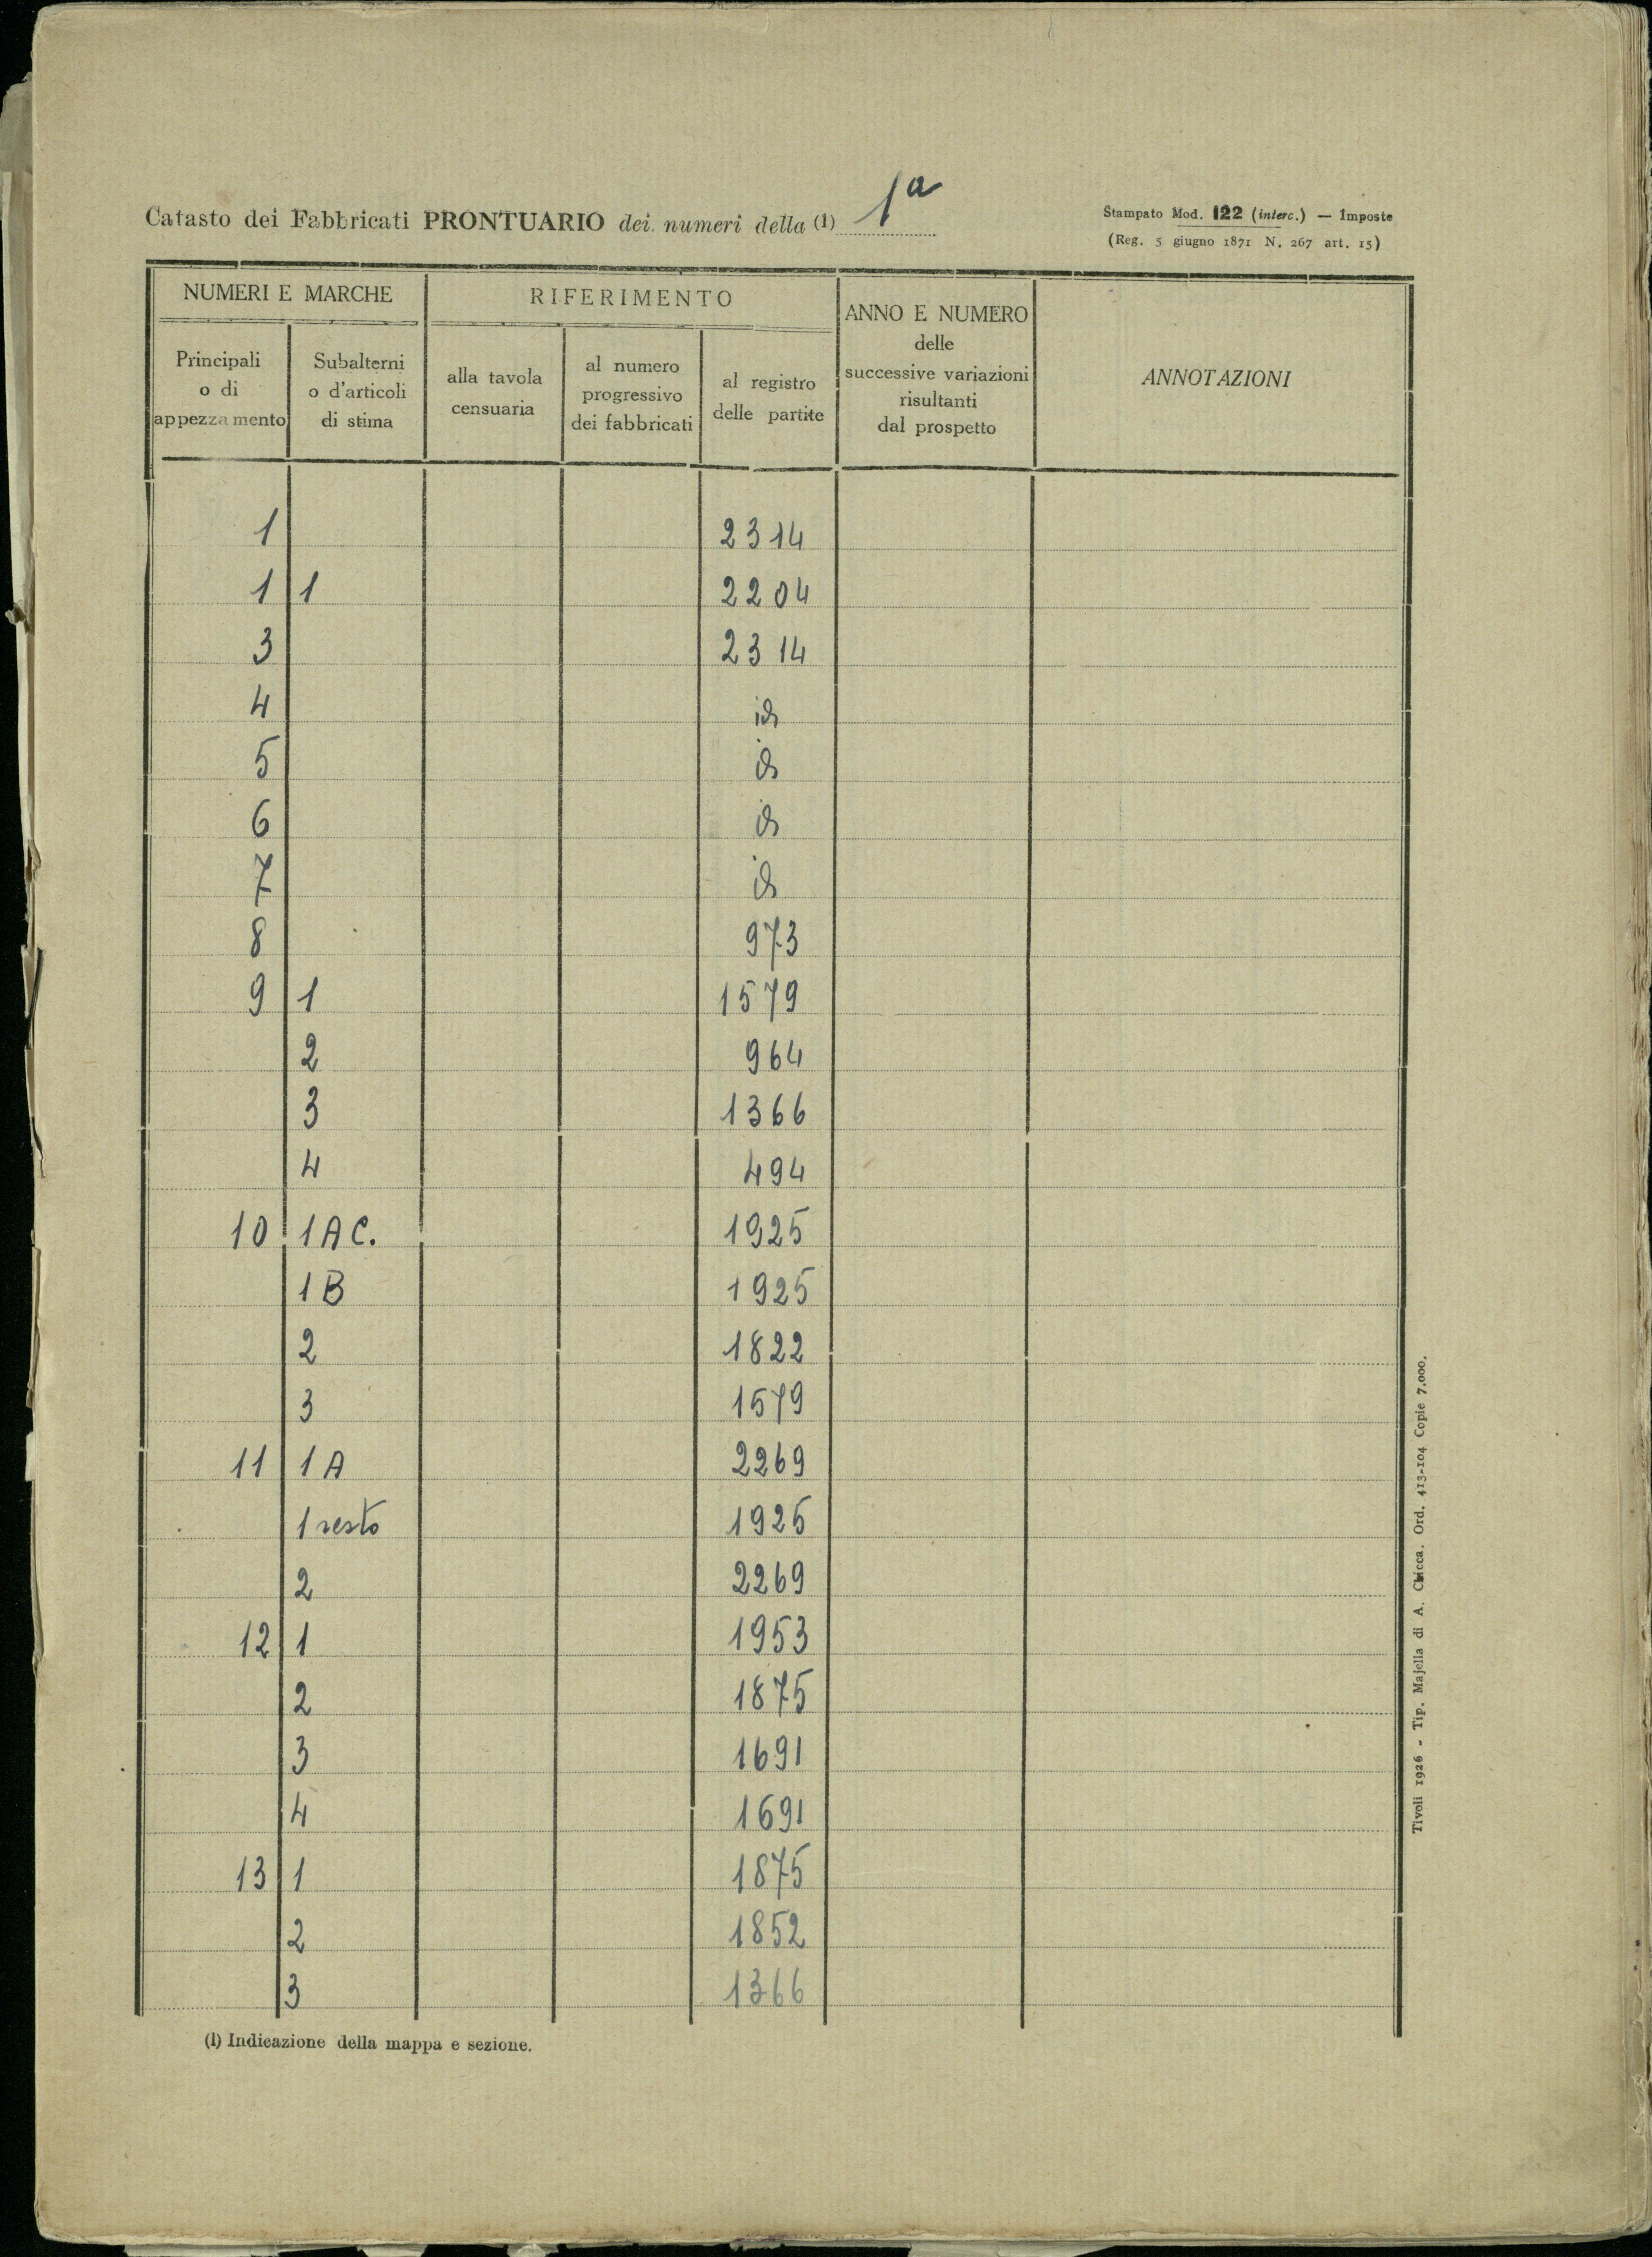 Catasto dei Fabbricati PRONTUARIO dei numeri della (1) 1a
Stampato Mod. 122 (interc.) — Imposte
(Reg. 5 giugno 1871 N. 267 art. 15)
NUMERI E MARCHE
RIFERIMENTO
ANNO E NUMERO
delle
successive variazioni
risultanti
dal prospetto
ANNOTAZIONI
Principali
o di
appezzamento
Subalterni
o d'articoli
di stima
alla tavola
censuaria
al numero
progressivo
dei fabbricati
al registro
delle partite
1 2314
1 1 2204
3 2314
4 id
5 id
6 id
7 id
8 973
9 1 1579
2 964
3 1366
4 494
10 1 A C. 1925
1 B 1925
2 1822
3 1579
11 1 A 2269
1 resto 1925
2 2269
12 1 1953
2 1875
3 1691
4 1691
13 1 1875
2 1852
3 1366
(1) Indicazione della mappa e sezione.
Tivoli 1926 - Tip. Majella di A. Chicca. Ord. 413-104 Copie 7.000.